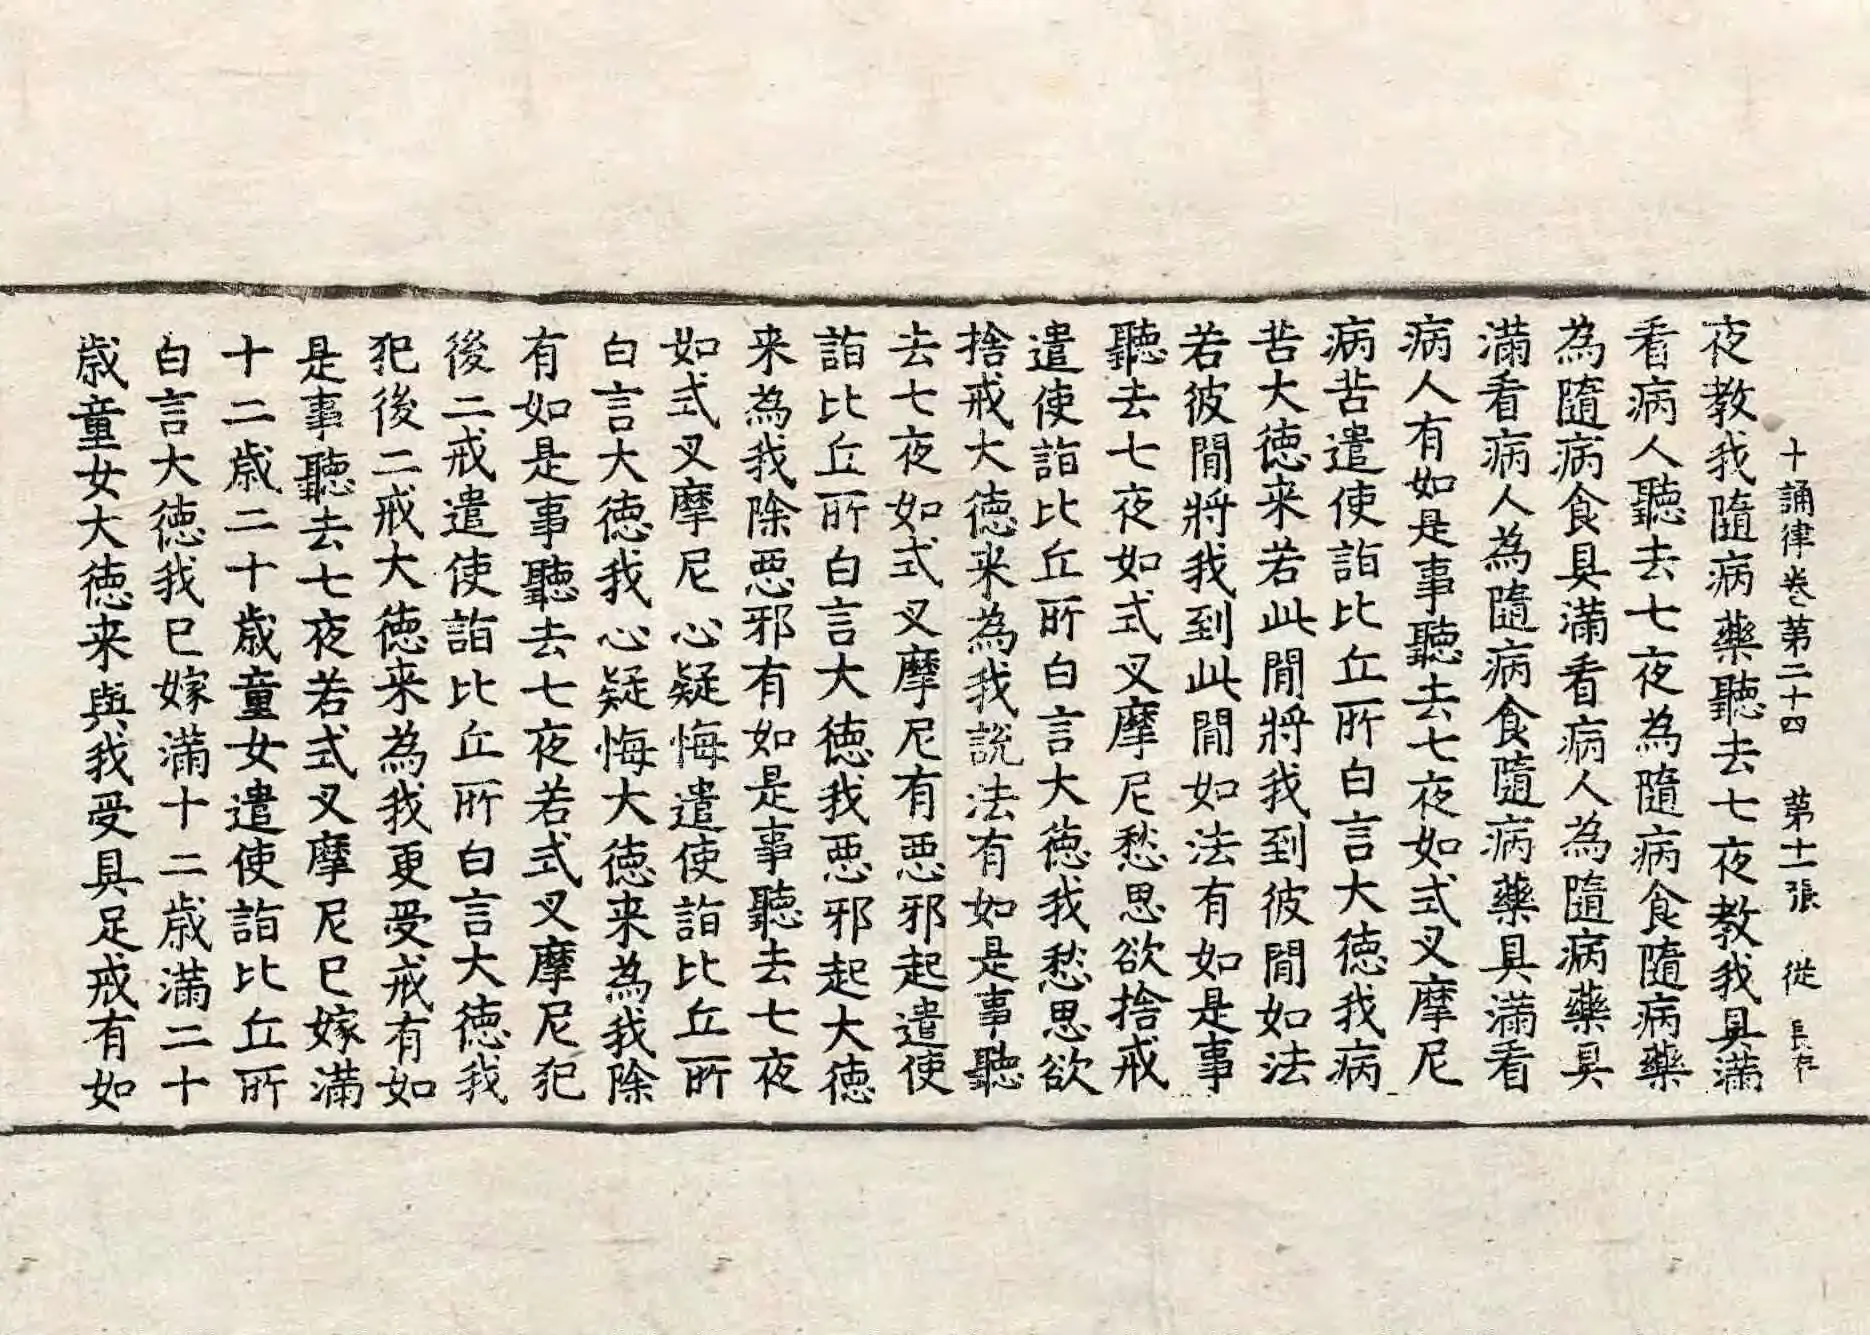 十誦律卷第二十四 第十一張 從
夜教我隨病藥聽去七夜教我具滿
看病人聽去七夜為隨病食隨病藥
為隨病食具滿看病人為隨病藥具
滿看病人為隨病食隨病藥具滿看
病人有如是事聽去七夜如式叉摩尼
病苦遣使詣比丘所白言大德我病
苦大德来若此間將我到彼間如法
若彼間將我到此間如法有如是事
聽去七夜如式叉摩尼愁思欲捨戒
遣使詣比丘所白言大德我愁思欲
捨戒大德来為我說法有如是事聽
去七夜如式叉摩尼有惡邪起遣使
詣比丘所白言大德我惡邪起大德
来為我除惡邪有如是事聽去七夜
如式叉摩尼心疑悔遣使詣比丘所
白言大德我心疑悔大德来為我除
有如是事聽去七夜若式叉摩尼犯
後二戒遣使詣比丘所白言大德我
犯後二戒大德来為我更受戒有如
是事聽去七夜若式叉摩尼已嫁滿
十二歲二十歲童女遣使詣比丘所
白言大德我已嫁滿十二歲滿二十
歲童女大德来與我受具足戒有如